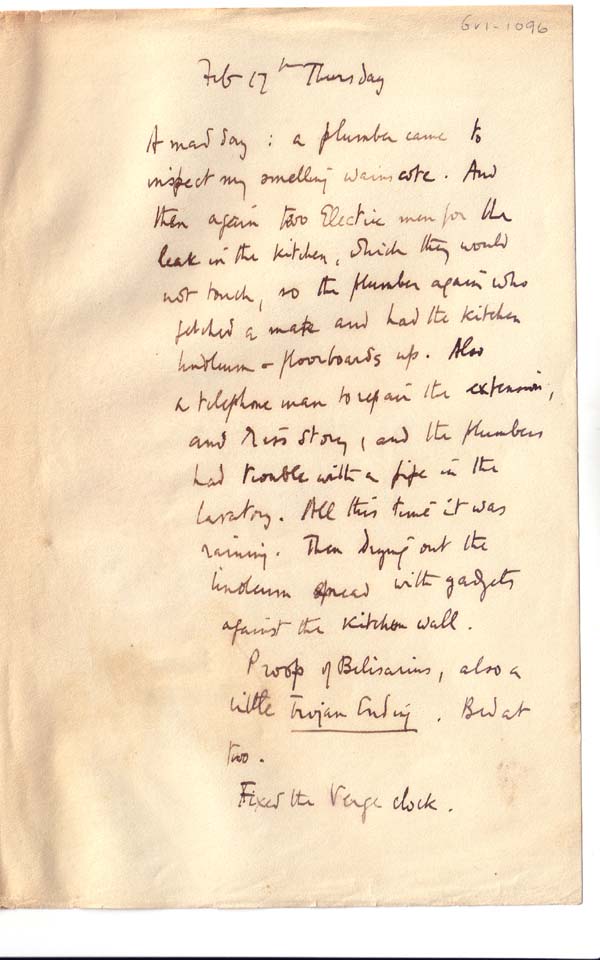 GV1-1096
Feb 17th Thursday
A mad day : a plumber came to
inspect my smelling wainscote. And
then again two Electric men for the
leak in the kitchen, which they would
not touch, so the plumber again who
fetched a mate and had the kitchen
linoleum & floorboards up. Also
a telephone man to repair the extension,
and Miss Story, and the plumbers
had trouble with a pipe in the
lavatory. All this time it was
raining. Then drying out the
linoleum spread with gadgets
against the kitchen wall.
Proofs of Belisarius, also a
little Trojan Ending. Bed at
two.
Fixed the Verge clock.